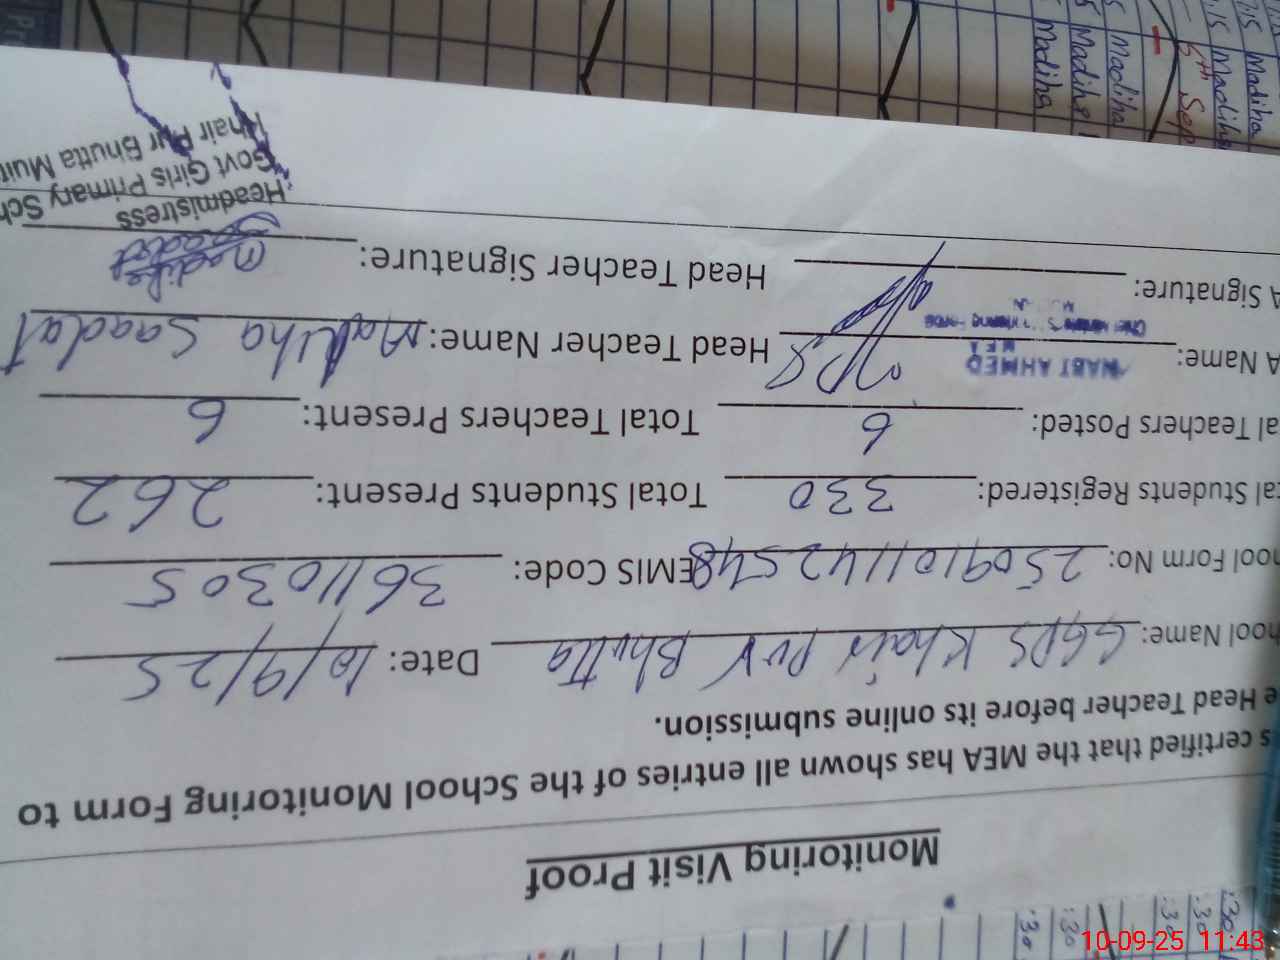 Monitoring Visit Proof
s certified that the MEA has shown all entries of the School Monitoring Form to
e Head Teacher before its online submission.
hool Name: GGPS Khair Pur Bhutta Date: 10/9/25
hool Form No: 2509101142548 EMIS Code: 36110305
tal Students Registered: 330 Total Students Present: 262
al Teachers Posted: 6 Total Teachers Present: 6
A Name: NABI AHMED Head Teacher Name: Madiha Saadat
MEA
A Signature: Head Teacher Signature: Madiha Saadat
Headmistress
Govt Girls Primary Sch
Khair Pur Bhutta Mult
:30
:30
:30
:30
:30
7:15 Madiha
7.15 Madiha
6th Sep
5 Madiha
5 Madiha
Madiha
10-09-25 11:43